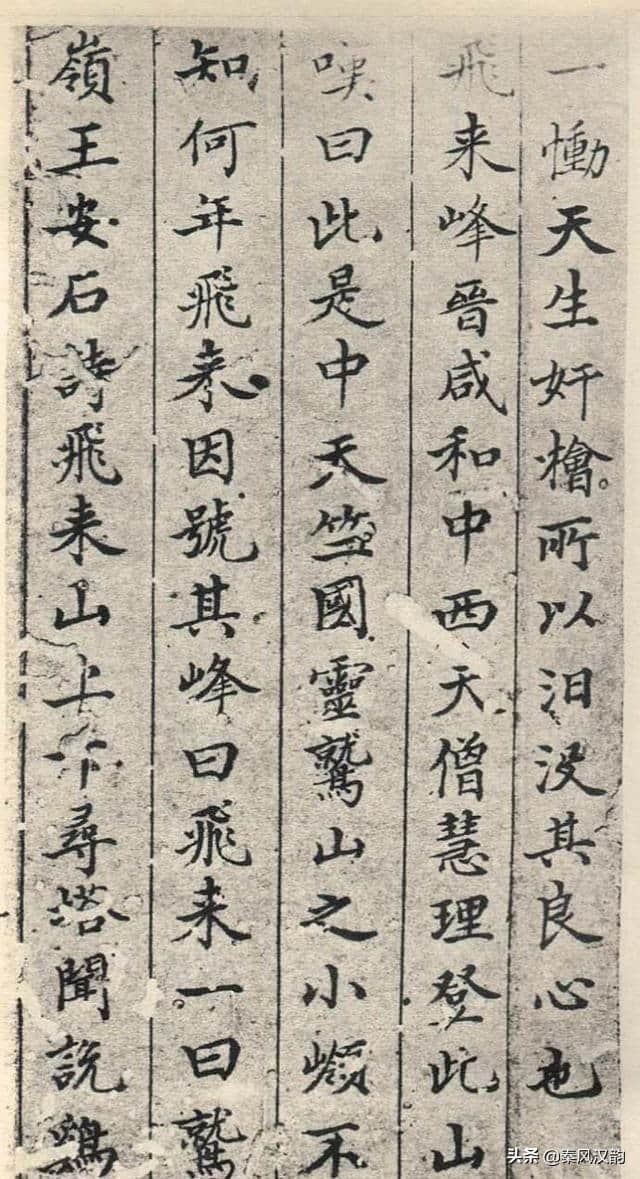 一慟天生奸檜所以汨沒其良心也
飛来峰晉咸和中西天僧慧理登此山
嘆曰此是中天竺國靈鷲山之小嶺不
知何年飛来因號其峰曰飛来一曰鷲
嶺王安石詩飛来山上下尋塔聞說鷄
头条 @秦风汉韵